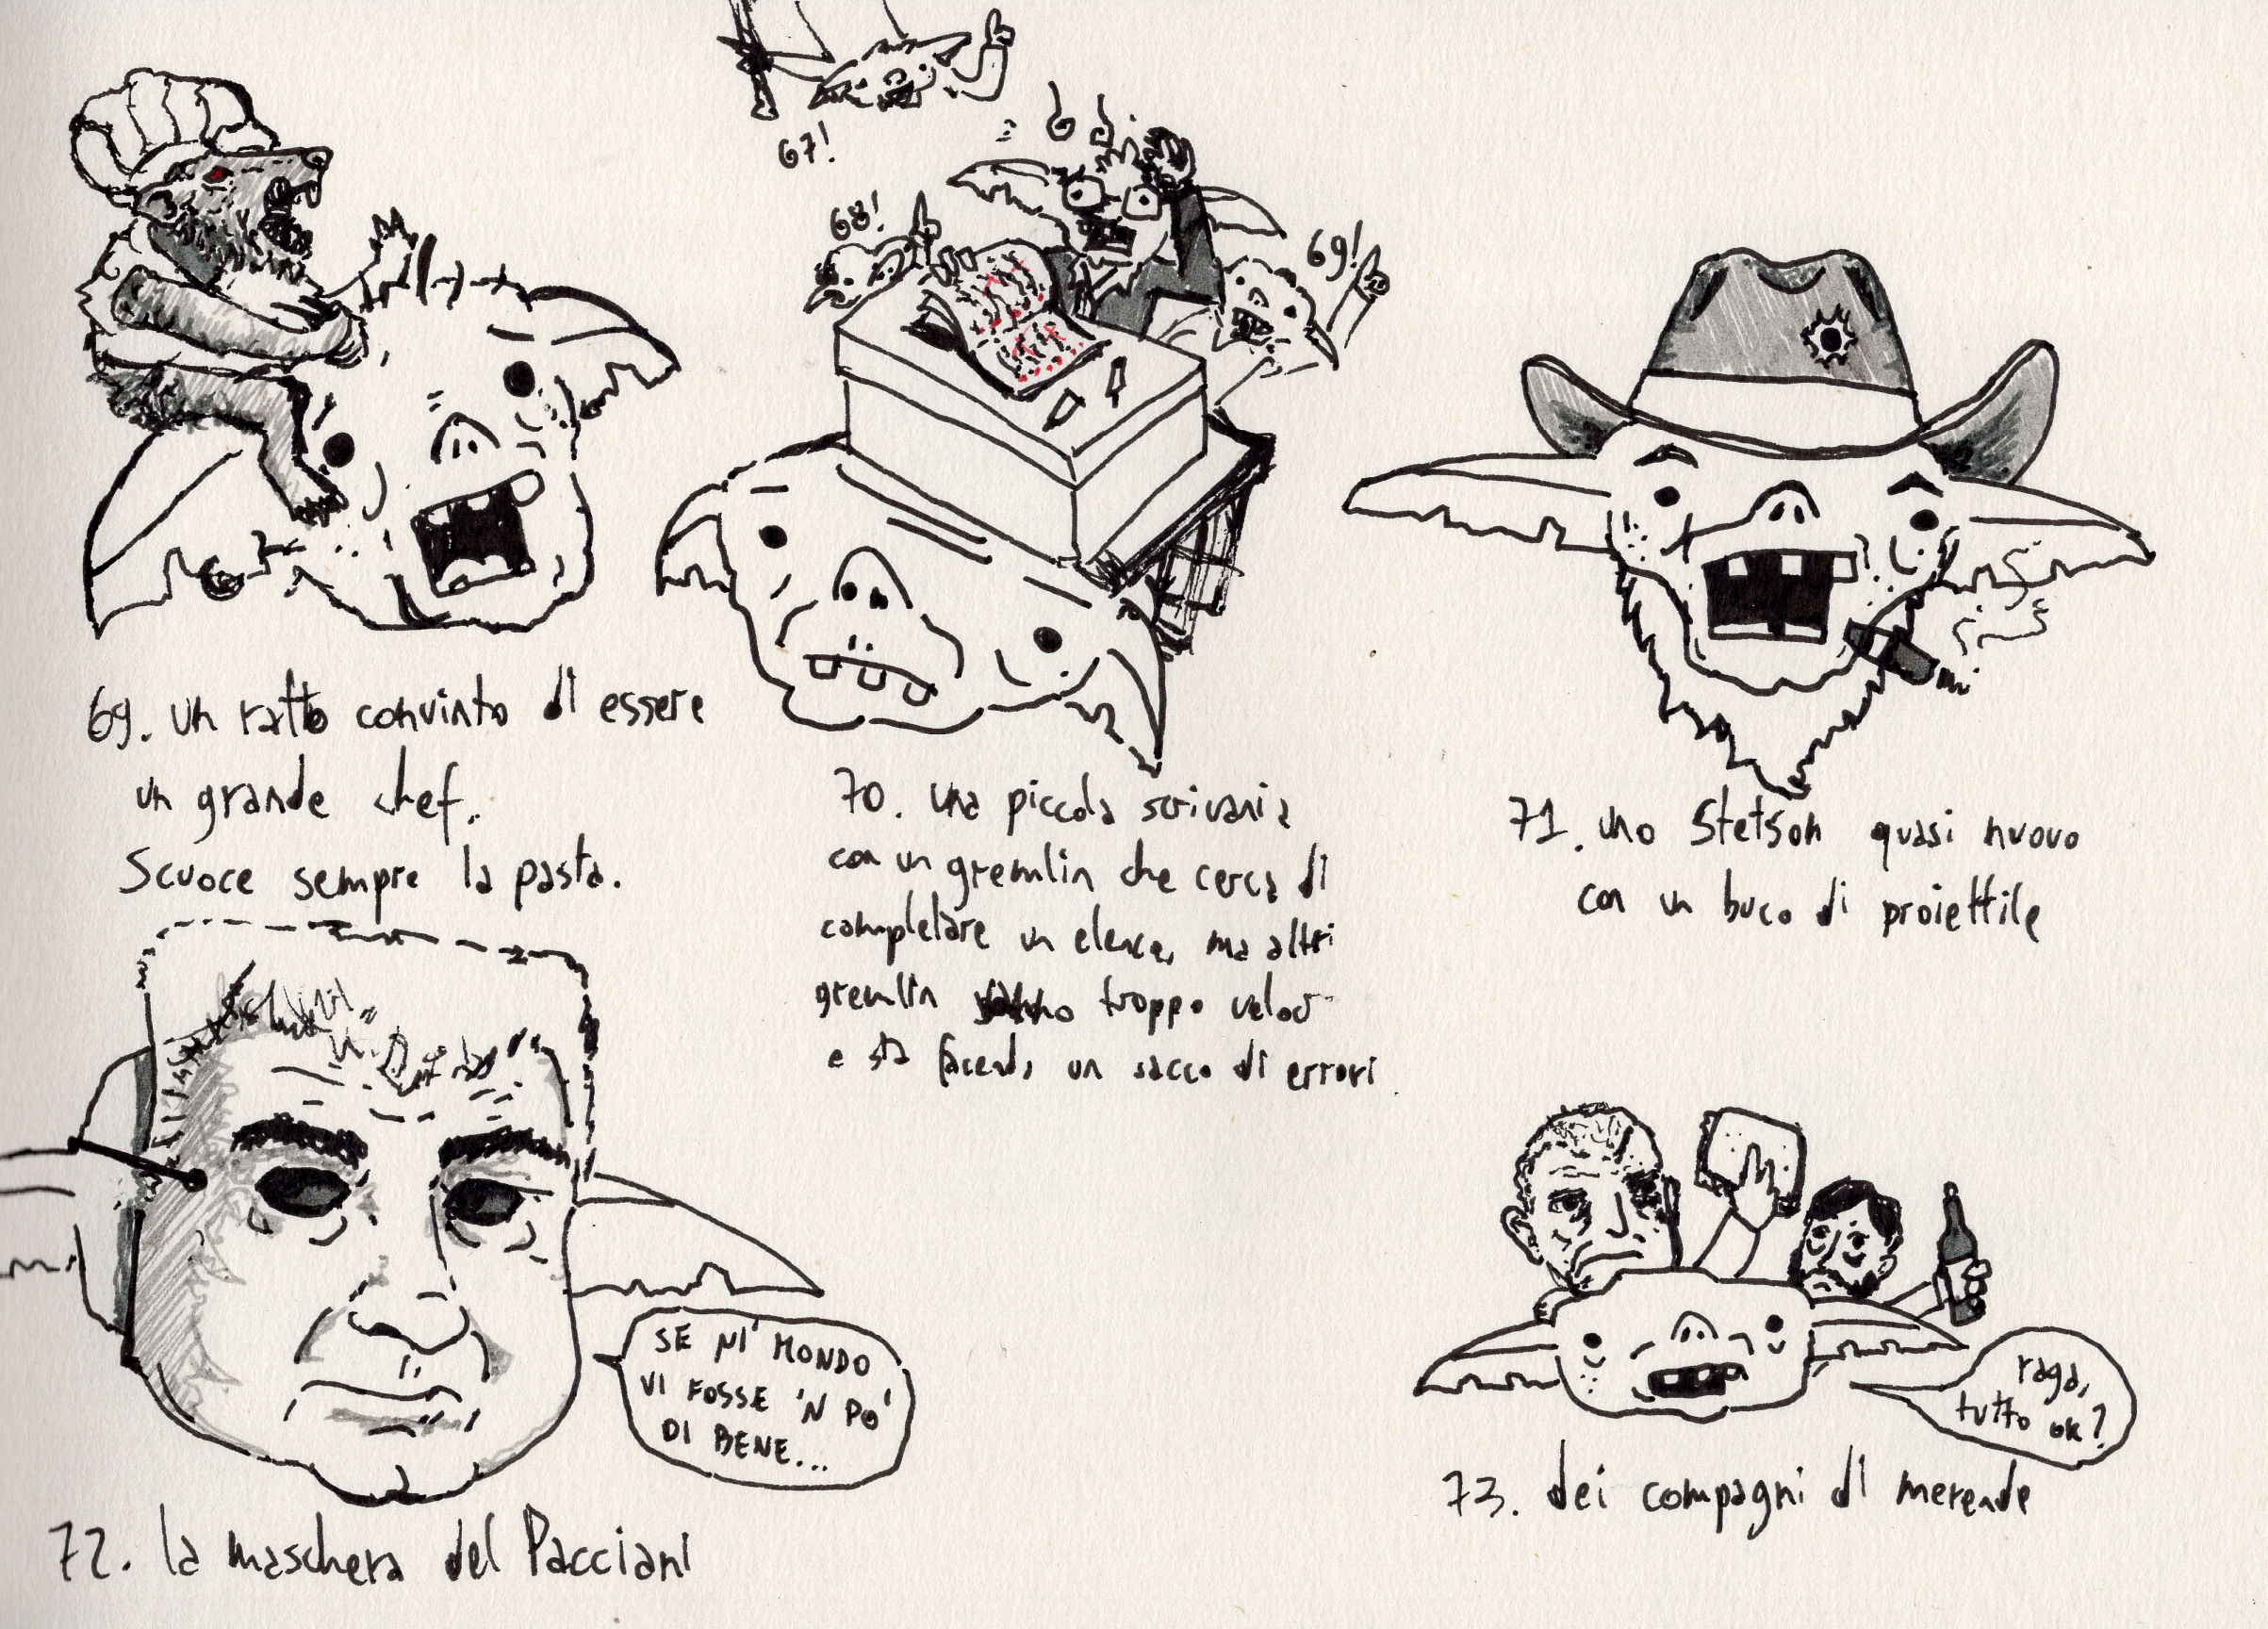 67!
68!
69!
69. un ratto convinto di essere
un grande chef.
Scuoce sempre la pasta.
70. una piccola scrivania
con un gremlin che cerca di
completare un elenco, ma altri
gremlin vanno troppo veloci
e sta facendo un sacco di errori.
71. uno Stetson quasi nuovo
con un buco di proiettile
SE NI' MONDO
VI FOSSE 'N PO'
DI BENE...
72. la maschera del Pacciani
raga,
tutto ok?
73. dei compagni di merende